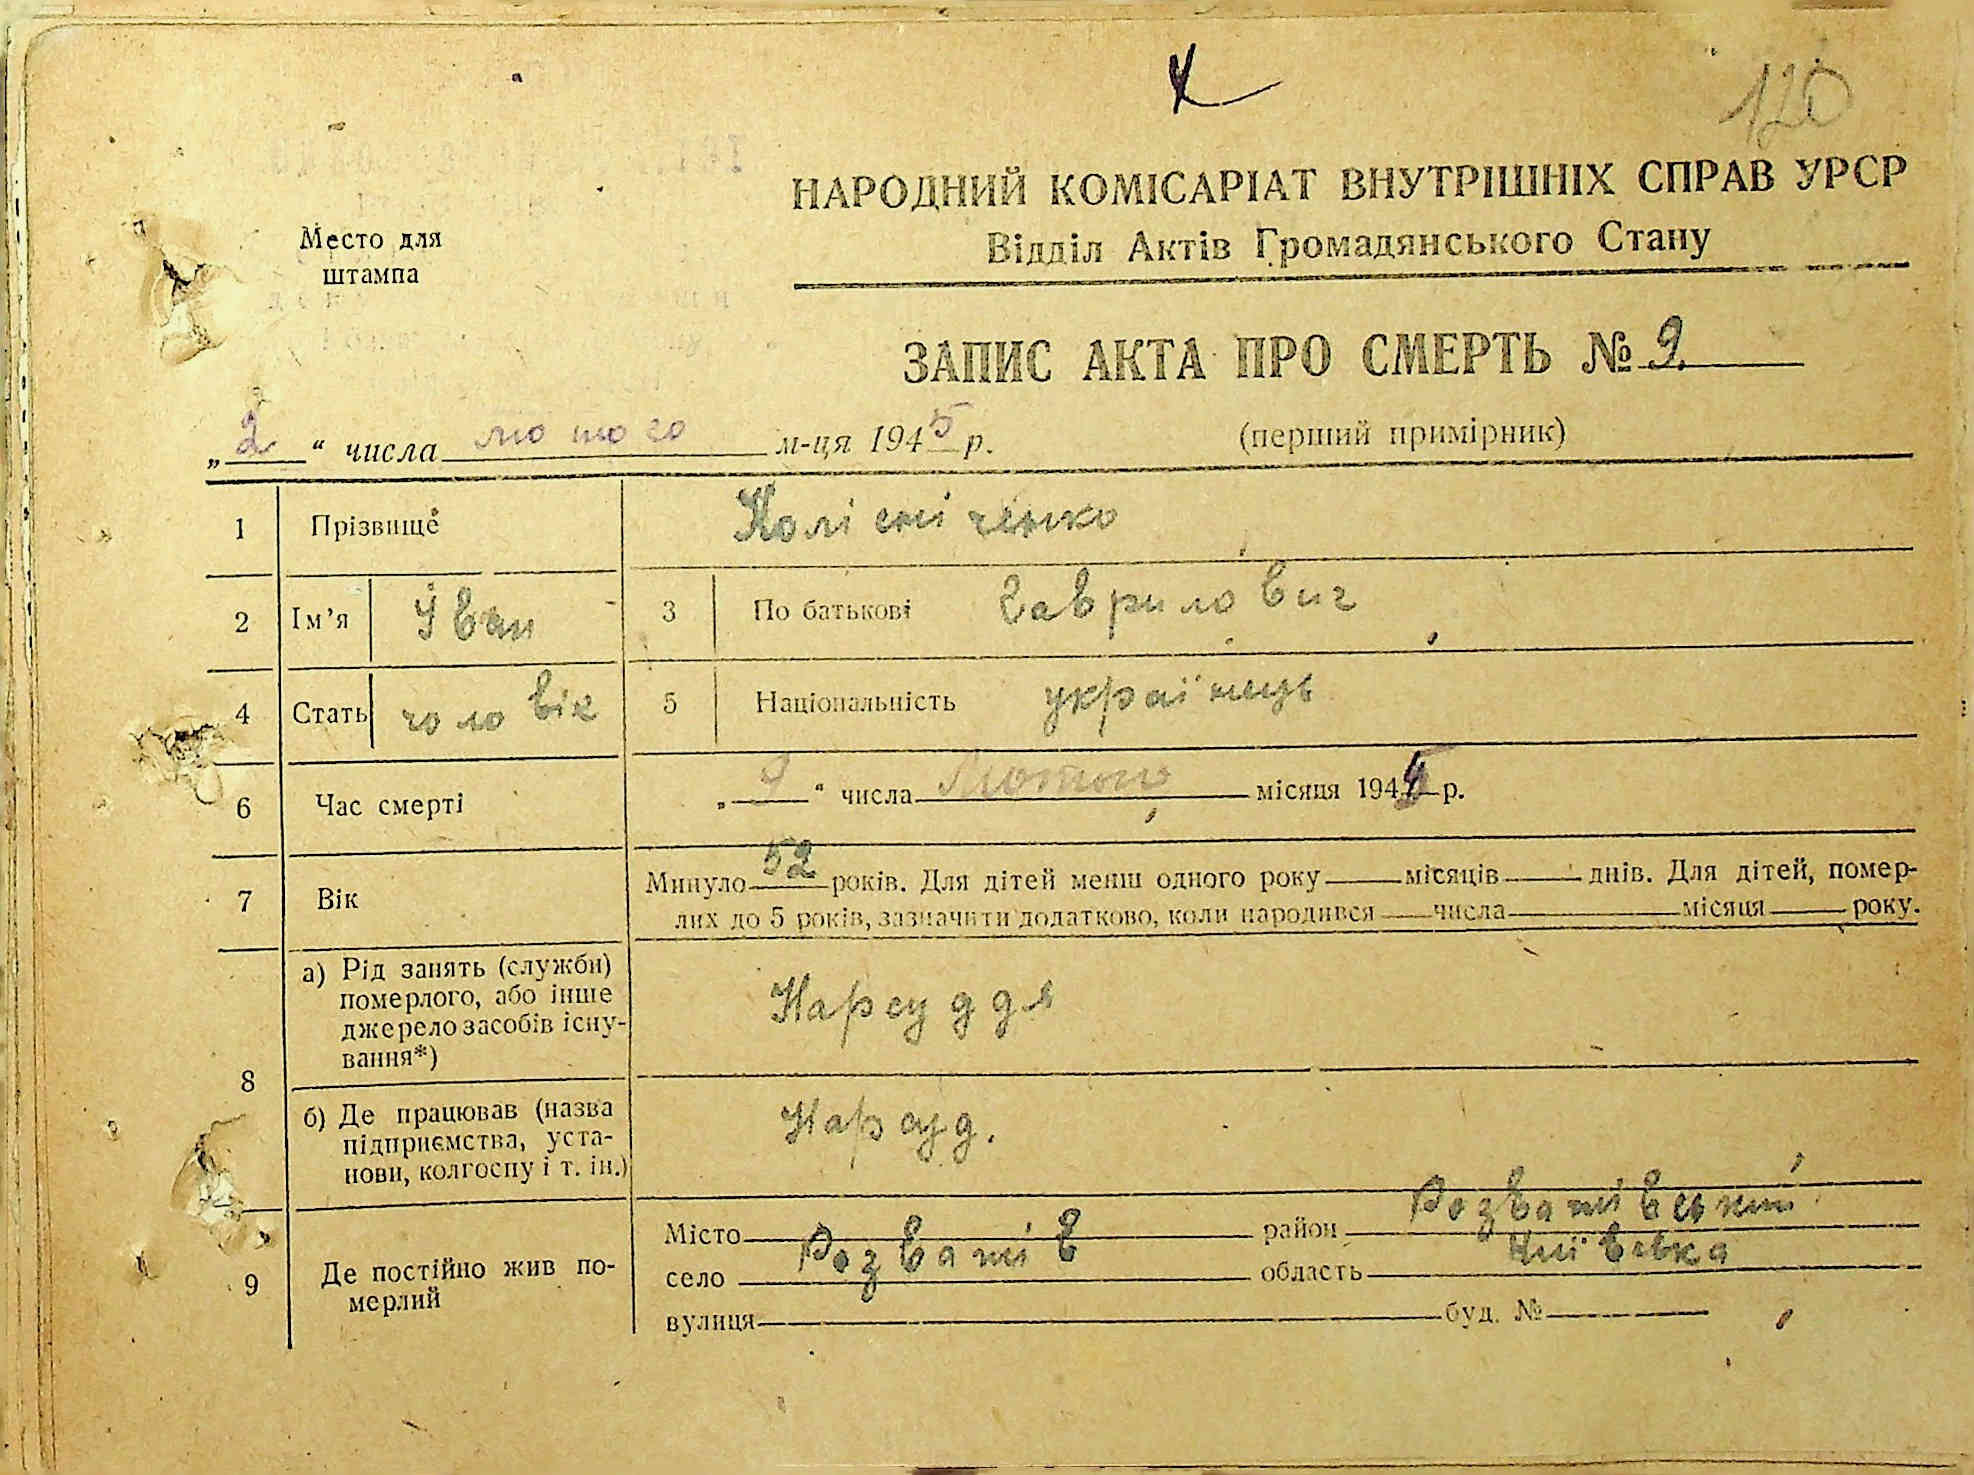 120
НАРОДНИЙ КОМІСАРІАТ ВНУТРІШНІХ СПРАВ УРСР
Відділ Актів Громадянського Стану
Место для
штампа
ЗАПИС АКТА ПРО СМЕРТЬ № 9
„2“ числа лютого м-ця 1945 р. (перший примірник)
1 Прізвище Колісніченко
2 Ім’я Іван 3 По батькові Гаврилович
4 Стать чоловік 5 Національність українець
6 Час смерті „ “ числа Лютого місяця 1945 р.
7 Вік Минуло 52 років. Для дітей менш одного року місяців днів. Для дітей, помер-
лих до 5 років, зазначити додатково, коли народився числа місяця року.
8 а) Рід занять (служби)
померлого, або інше
джерело засобів існу-
вання*)
Нарсуддя
б) Де працював (назва
підприємства, уста-
нови, колгоспу і т. ін.)
Нарсуд.
9 Де постійно жив по-
мерлий
Місто район Розваживський
село Розважів область Київська
вулиця буд. №